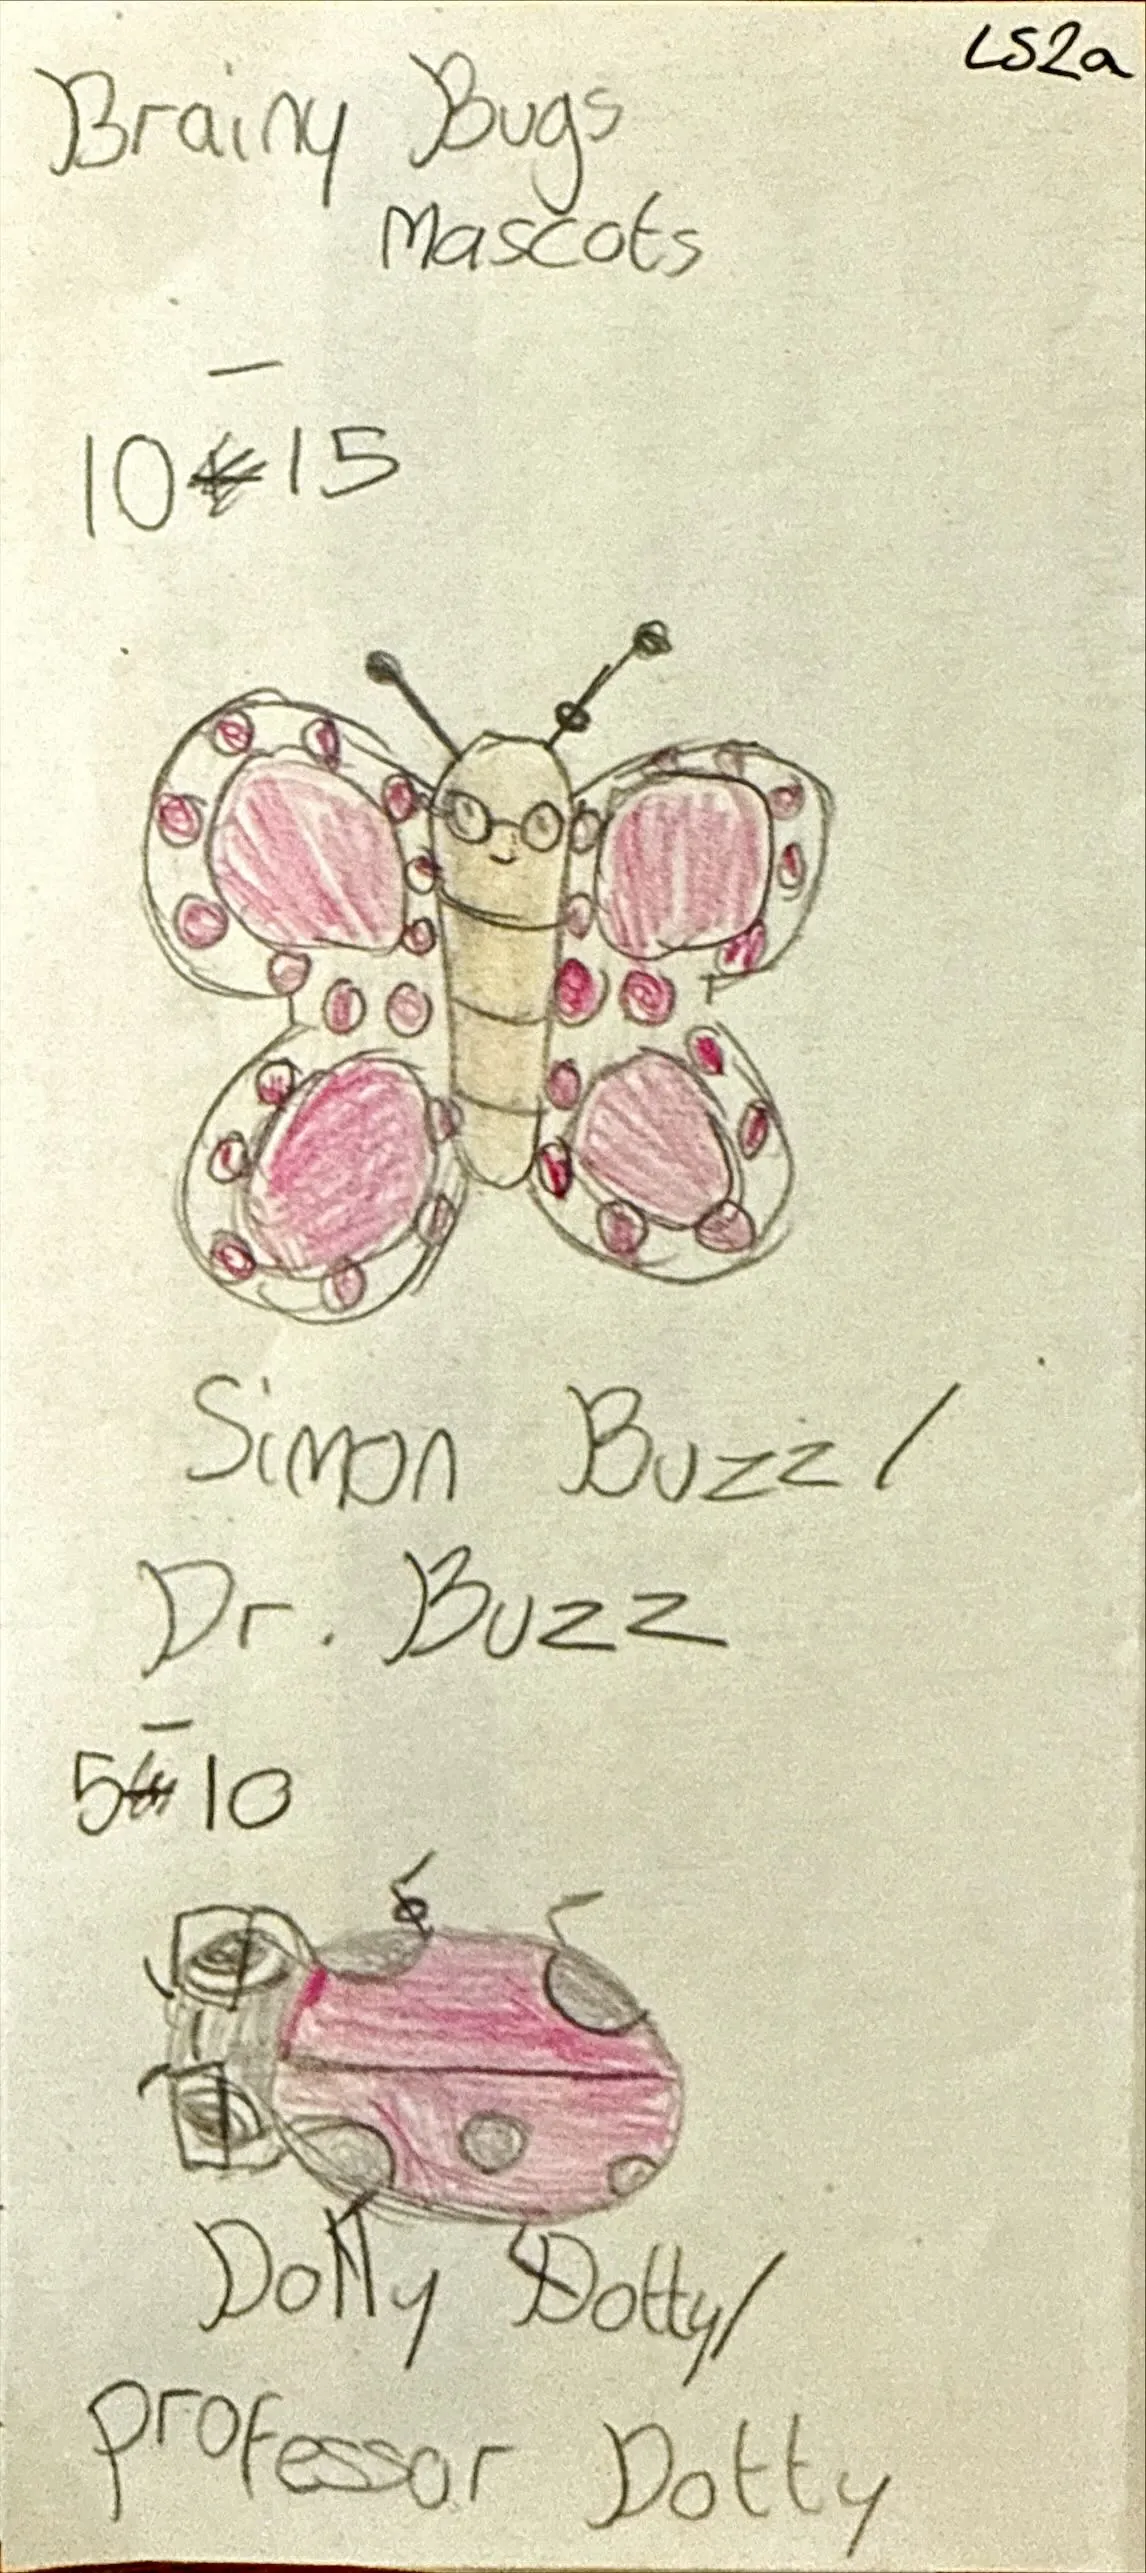 LS2a
Brainy Bugs
Mascots
10-15
Simon Buzz/
Dr. Buzz
5-10
Dolly Dotty/
Professor Dotty